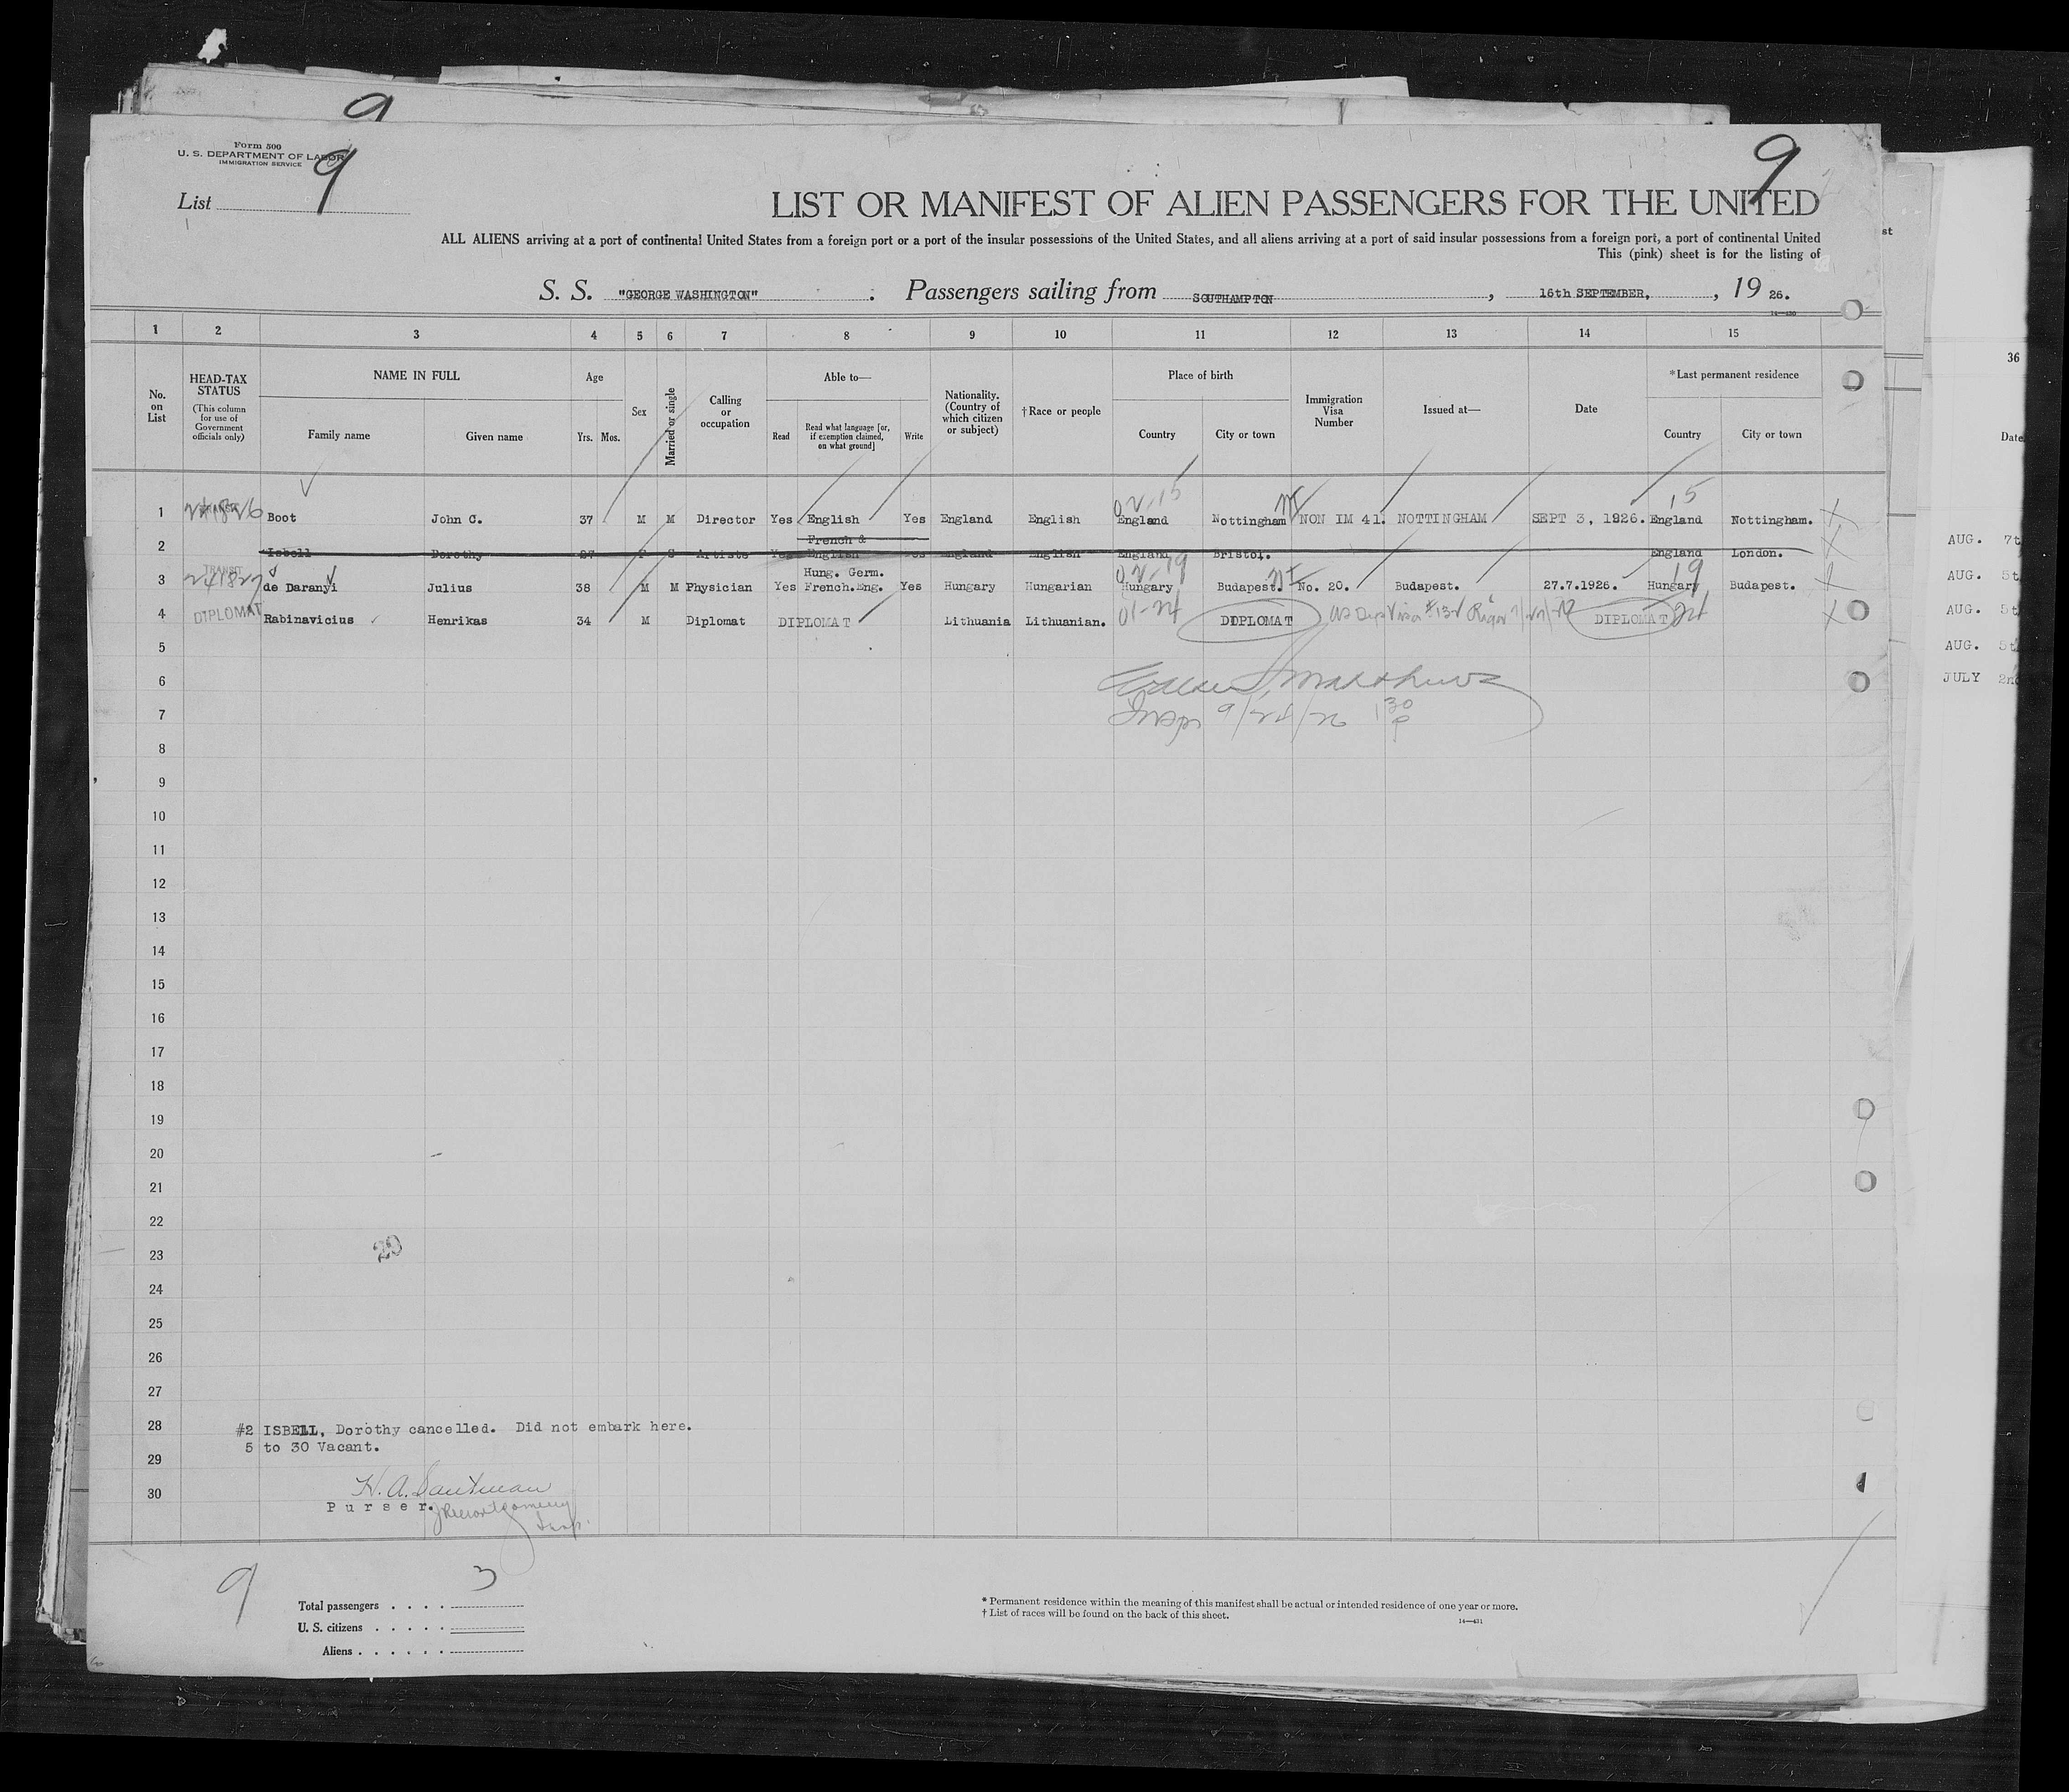 9
Form 500
U. S. DEPARTMENT OF LABOR
IMMIGRATION SERVICE
List 9
9
LIST OR MANIFEST OF ALIEN PASSENGERS FOR THE UNITED
ALL ALIENS arriving at a port of continental United States from a foreign port or a port of the insular possessions of the United States, and all aliens arriving at a port of said insular possessions from a foreign port, a port of continental United
This (pink) sheet is for the listing of
st
S. S. "GEORGE WASHINGTON" . Passengers sailing from SOUTHAMPTON , 16th SEPTEMBER, , 19 26.
14—430
1 2 3 4 5 6 7 8 9 10 11 12 13 14 15
36
No. on List
HEAD-TAX STATUS
(This column for use of Government officials only)
NAME IN FULL
Family name Given name
Age
Yrs. Mos.
Sex
Married or single
Calling or occupation
Able to—
Read
Read what language [or, if exemption claimed, on what ground]
Write
Nationality. (Country of which citizen or subject)
† Race or people
Place of birth
Country City or town
Immigration Visa Number
Issued at—
Date
* Last permanent residence
Country City or town
Date
02-15 15
1 241826 Boot John C. 37 M M Director Yes English Yes England English England Nottingham NON IM 41. NOTTINGHAM SEPT 3, 1926. England Nottingham.
2 Isbell Dorothy 27 F S Artiste Yes French & English Yes England English England Bristol. England London.
AUG. 7t
TRANSIT
02-19 19
3 241827 de Daranyi Julius 38 M M Physician Yes Hung. Germ. French. Eng. Yes Hungary Hungarian Hungary Budapest. No. 20. Budapest. 27.7.1926. Hungary Budapest.
AUG. 5t
4 DIPLOMAT Rabinavicius Henrikas 34 M Diplomat DIPLOMAT Lithuania Lithuanian. 01-24 DIPLOMAT DIPLOMAT 24
AUG. 5t
5
AUG. 5t
6
JULY 2nd
7 Insp 9/24/26 1 30 P
8
9
10
11
12
13
14
15
16
17
18
19
20
21
22
23
20
24
25
26
27
28 #2 ISBELL, Dorothy cancelled. Did not embark here.
5 to 30 Vacant.
29
30
Purser.
Insp.
9
Total passengers . . . . 3
U. S. citizens . . . . .
Aliens . . . . . .
* Permanent residence within the meaning of this manifest shall be actual or intended residence of one year or more.
† List of races will be found on the back of this sheet.
14—431